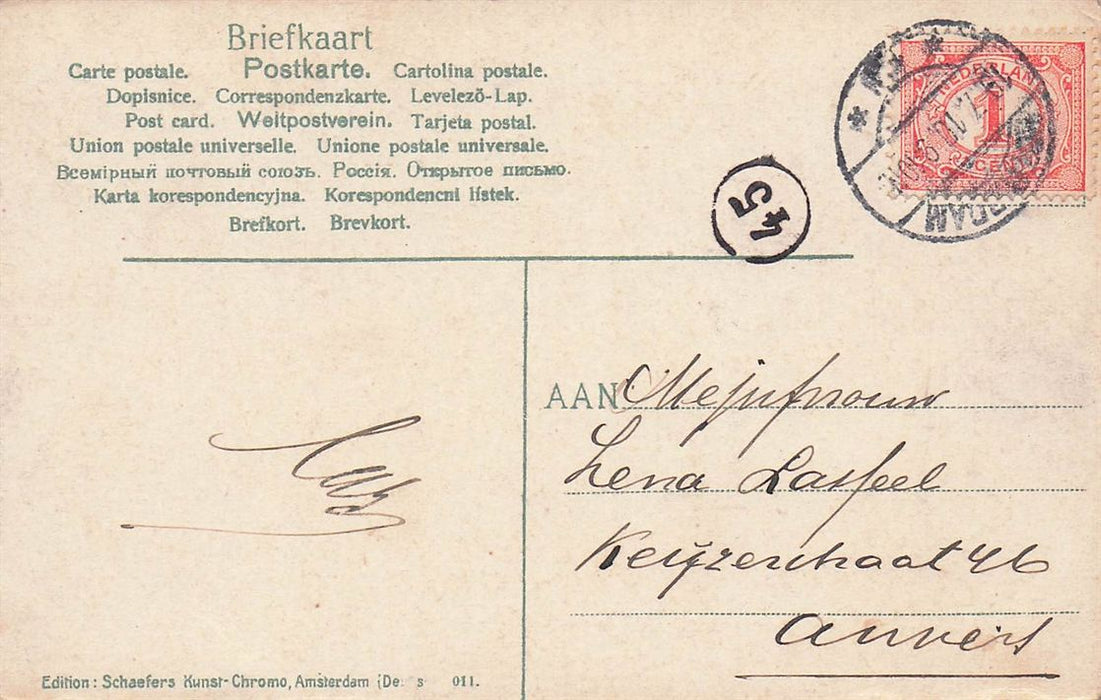 Briefkaart
Carte postale. Postkarte. Cartolina postale.
Dopisnice. Correspondenzkarte. Levelező-Lap.
Post card. Weltpostverein. Tarjeta postal.
Union postale universelle. Unione postale universale.
Всемірный почтовый союзъ. Россія. Открытое письмо.
Karta korespondencyjna. Korespondencni lístek.
Brefkort. Brevkort.
NEDERLAND
1
CENT
45
AAN Mejufvrouw
Lena Lasfeel
Keyzerstraat 46
Anvers
Edition: Schaefers Kunst-Chromo, Amsterdam (De s 011.